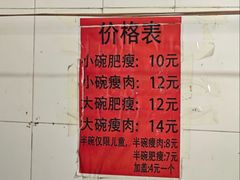 价格表
小碗肥瘦: 10元
小碗瘦肉: 12元
大碗肥瘦: 12元
大碗瘦肉: 14元
半碗仅限儿童, 半碗瘦肉:8元
半碗肥瘦:7元
加盖:4元一个